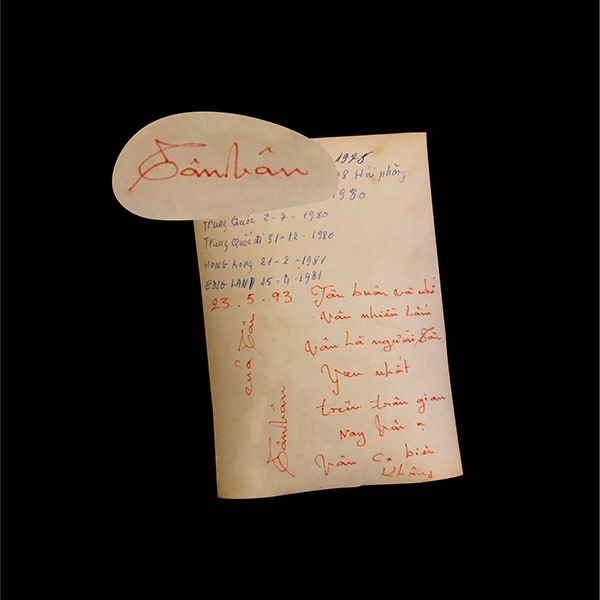 TânVân
1975
8 Hải phòng
1980
Trung Quốc 2-7-1980
Trung Quốc đi 31-12-1980
HONG KONG 21-2-1981
ENG LAND 15-4-1981
23.5.93 Tân buồn và nhớ
Vân nhiều lắm
Vân là người Tân
yêu nhất
trên trần gian
Này Vân ạ
Vân có biết
không
của Tân
TânVân